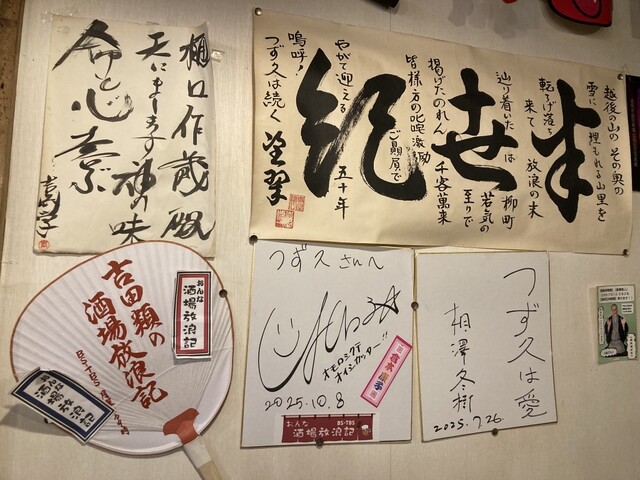 樋口作蔵殿
天にまします神の味
命と心意
越後の山の その奥の
雪に埋もれる山里を
転げ落ち
来て 放浪の末
辿り着いた は 柳町
若気の
至りで
掲げたのれん 千客萬来
皆様方の叱咤激励
ご贔屓で
やがて迎える 五十年
嗚呼!
つず久は続く
半世紀
吉田類の
酒場放浪記
おんな
酒場放浪記
おんな
酒場放浪記
つず久さんへ
オモロシクテ
オイシカッター!!
2025.10.8
おんな
BS-TBS
酒場放浪記
つず久は愛
相澤冬樹
2025.7.26